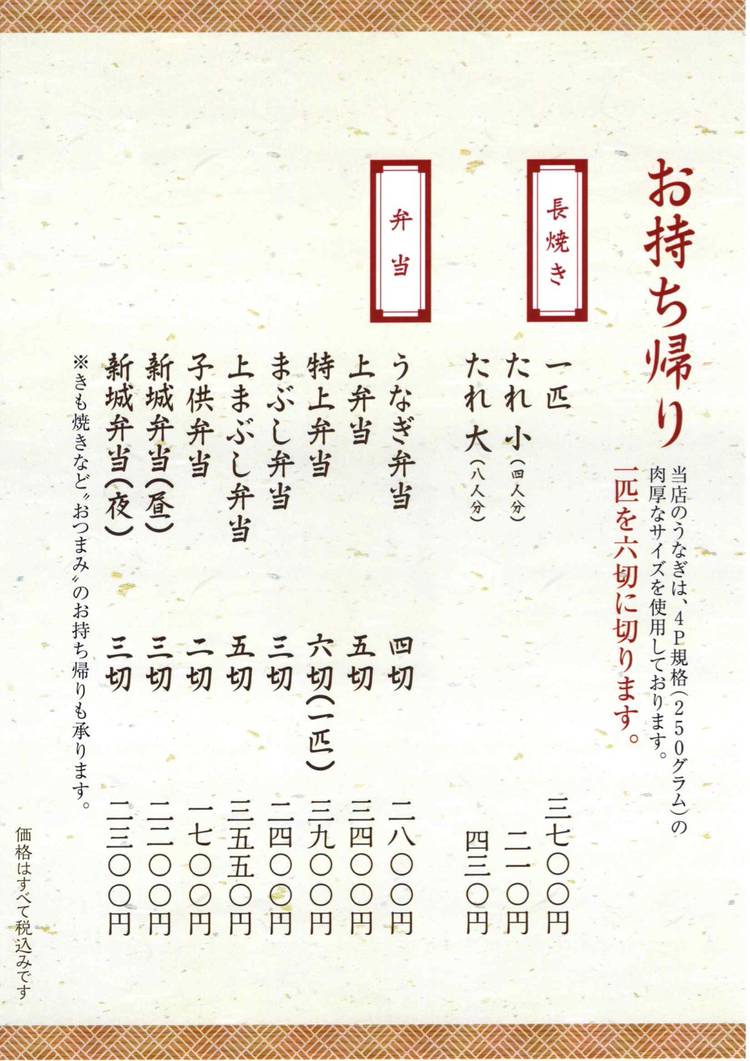 お持ち帰り
当店のうなぎは、4P規格(250グラム)の
肉厚なサイズを使用しております。
一匹を六切に切ります。
長焼き
一匹 三七〇〇円
たれ 小(四人分) 二一〇円
たれ 大(八人分) 四三〇円
弁当
うなぎ弁当 四切 二八〇〇円
上弁当 五切 三四〇〇円
特上弁当 六切(一匹) 三九〇〇円
まぶし弁当 三切 二四〇〇円
上まぶし弁当 五切 三五五〇円
子供弁当 二切 一七〇〇円
新城弁当(昼) 三切 二二〇〇円
新城弁当(夜) 三切 二三〇〇円
※きも焼きなど〝おつまみ〟のお持ち帰りも承ります。
価格はすべて税込みです